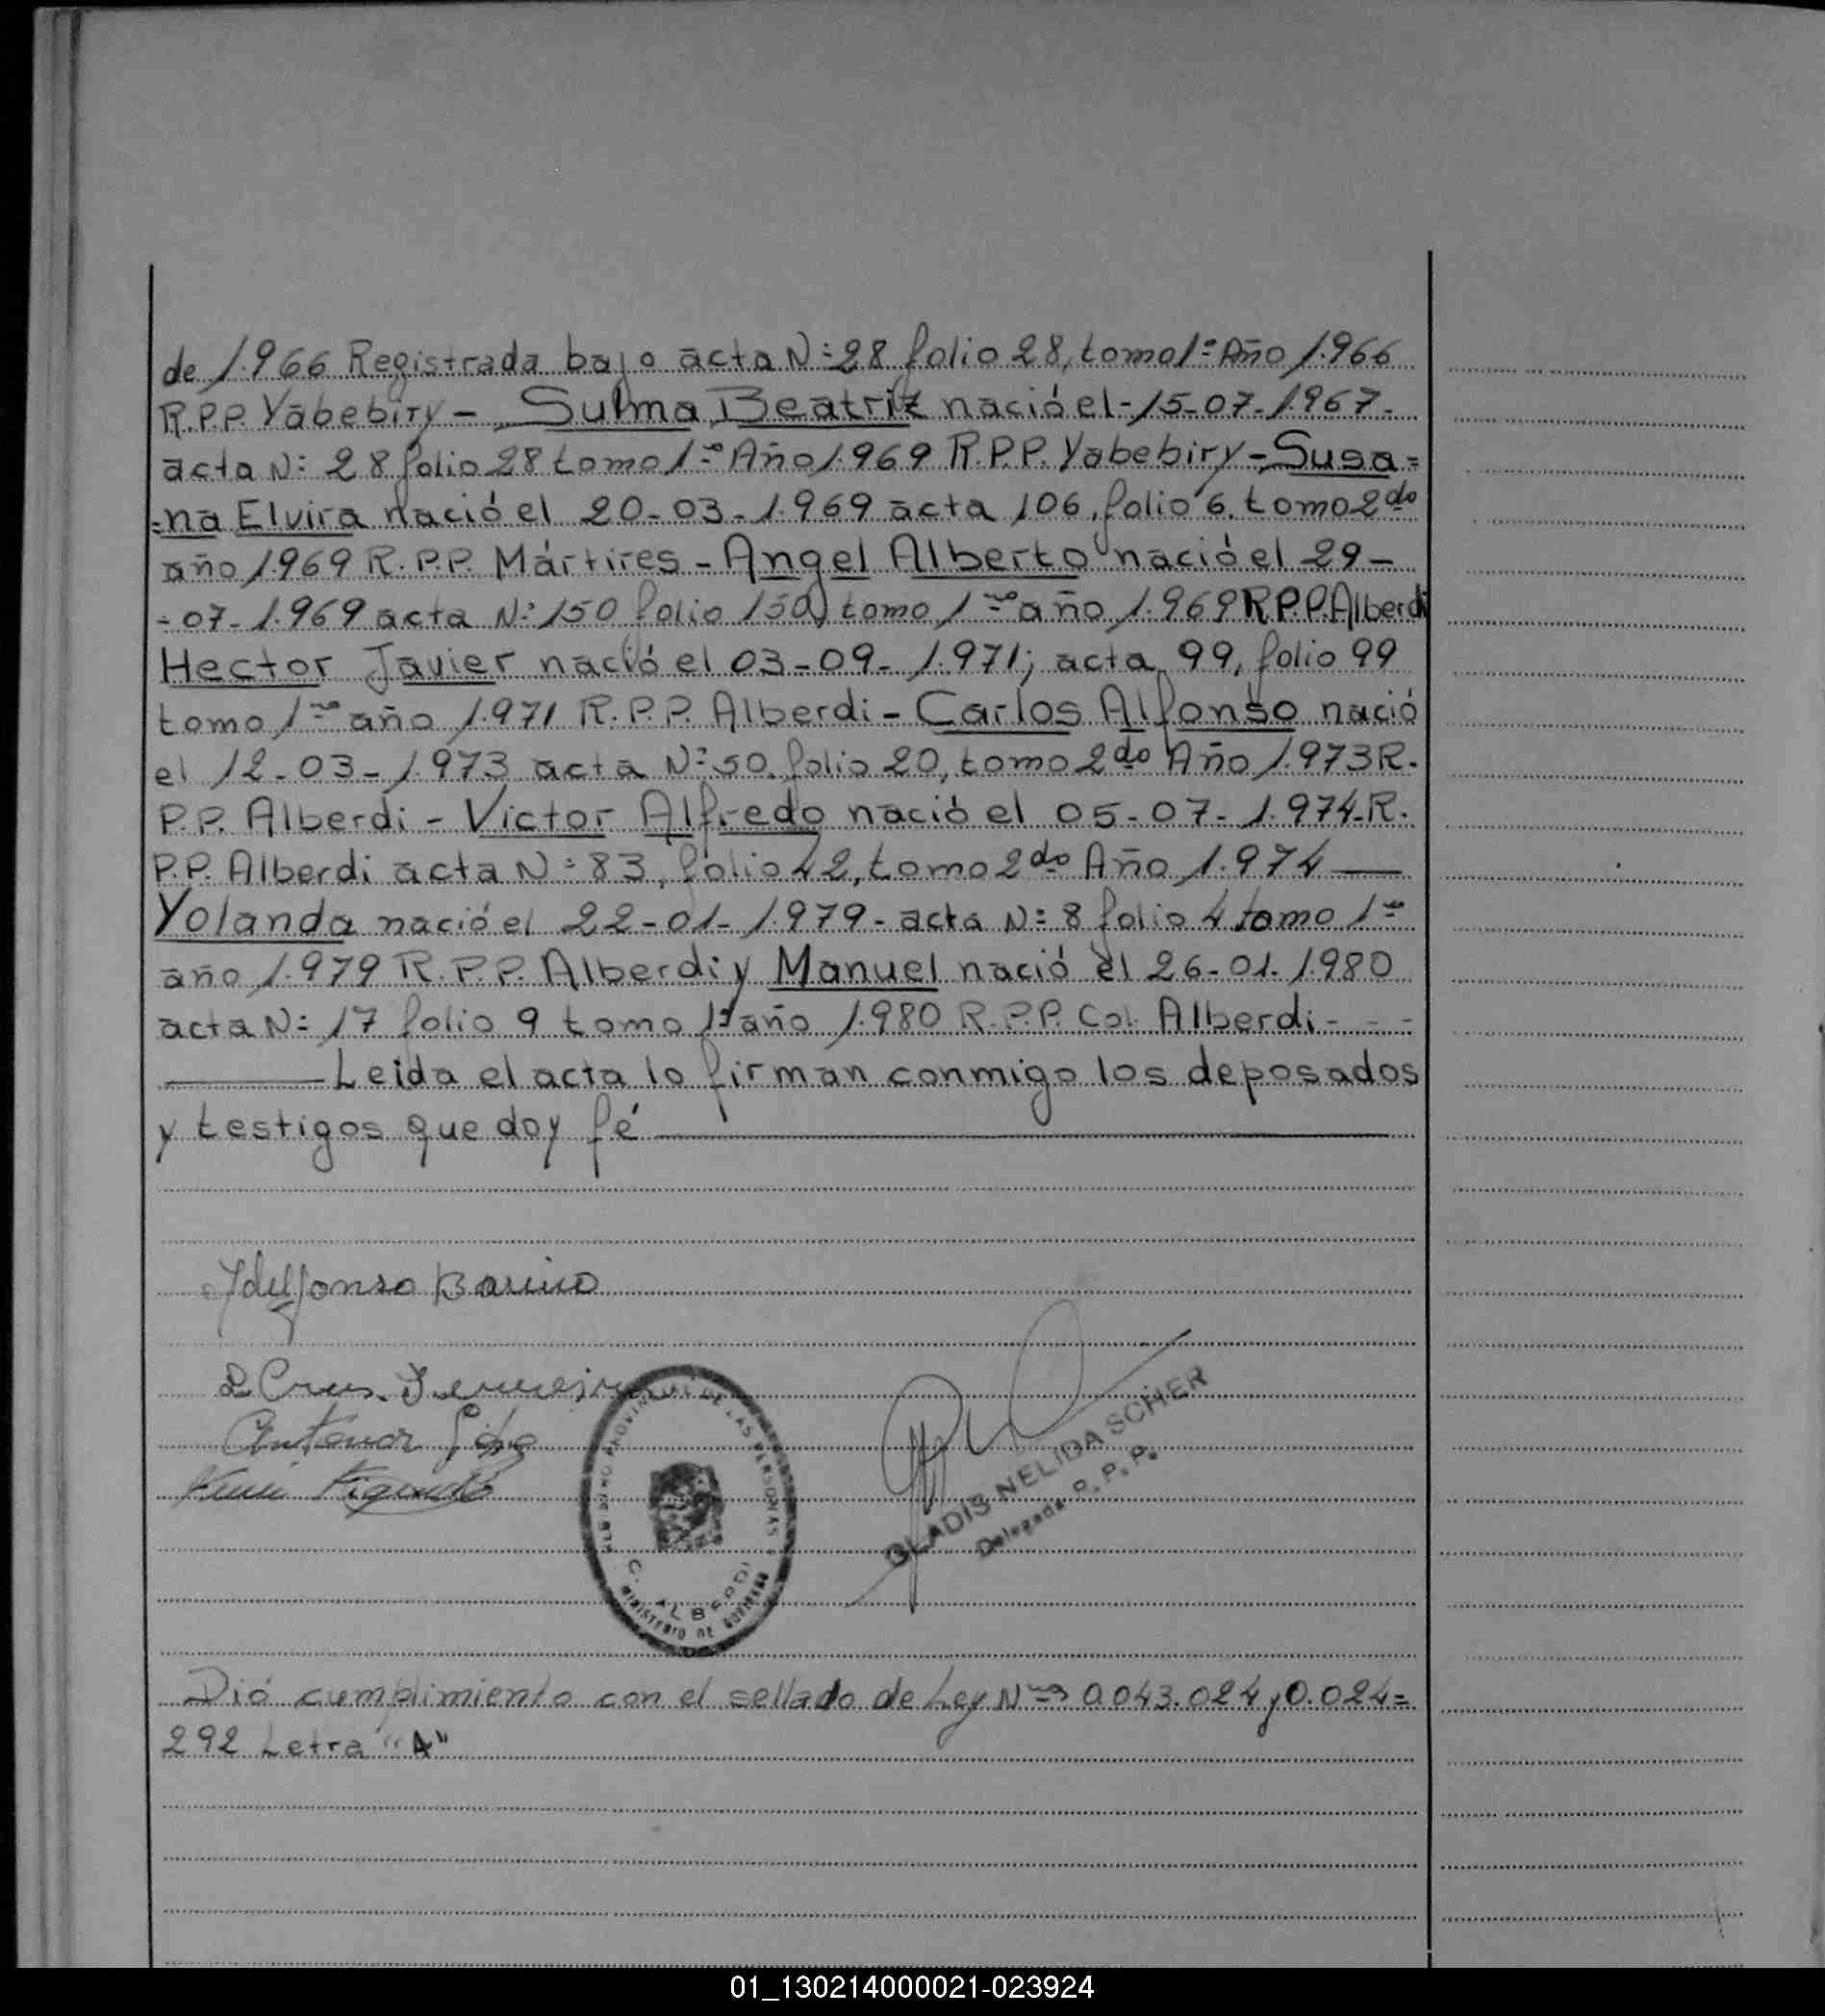 de 1.966 Registrada bajo acta N: 28 folio 28, tomo 1º Año 1.966
R.P.P. Yabebiry - Sulma Beatriz nació el - 15-07-1.967-
acta N: 28 folio 28 tomo 1ro Año 1.969 R.P.P. Yabebiry - Susa=
=na Elvira nació el 20-03-1.969 acta 106, folio 6. tomo 2do
año 1.969 R.P.P. Mártires - Angel Alberto nació el 29-
-07-1.969 acta N: 150 folio 150 tomo 1ro año 1.969 R.P.P. Alberdi
Hector Javier nació el 03-09-1.971; acta 99, folio 99
tomo 1ro año 1.971 R.P.P. Alberdi - Carlos Alfonso nació
el 12-03-1.973 acta Nº 50. folio 20, tomo 2do Año 1.973 R.
P.P. Alberdi - Victor Alfredo nació el 05-07-1.974-R.
P.P. Alberdi acta N: 83, folio 42, tomo 2do Año 1.974 —
Yolanda nació el 22-01-1.979- acta N: 8 folio 4 tomo 1ro
año 1.979 R.P.P. Alberdi y Manuel nació el 26-01-1.980
acta N: 17 folio 9 tomo 1º año 1.980 R.P.P. Col. Alberdi - - -
— Leida el acta lo firman conmigo los deposados
y testigos que doy fé —
Ydelfonso
Antenor
DE LAS PERSONAS
C. ALBERDI
MINISTERIO DE GOBIERNO
GLADIS NELIDA SCHER
Delegada R.P.P.
Dió cumplimiento con el sellado de Ley Nros 0.043.024 y 0.024=
292 Letra "A"
01_130214000021-023924